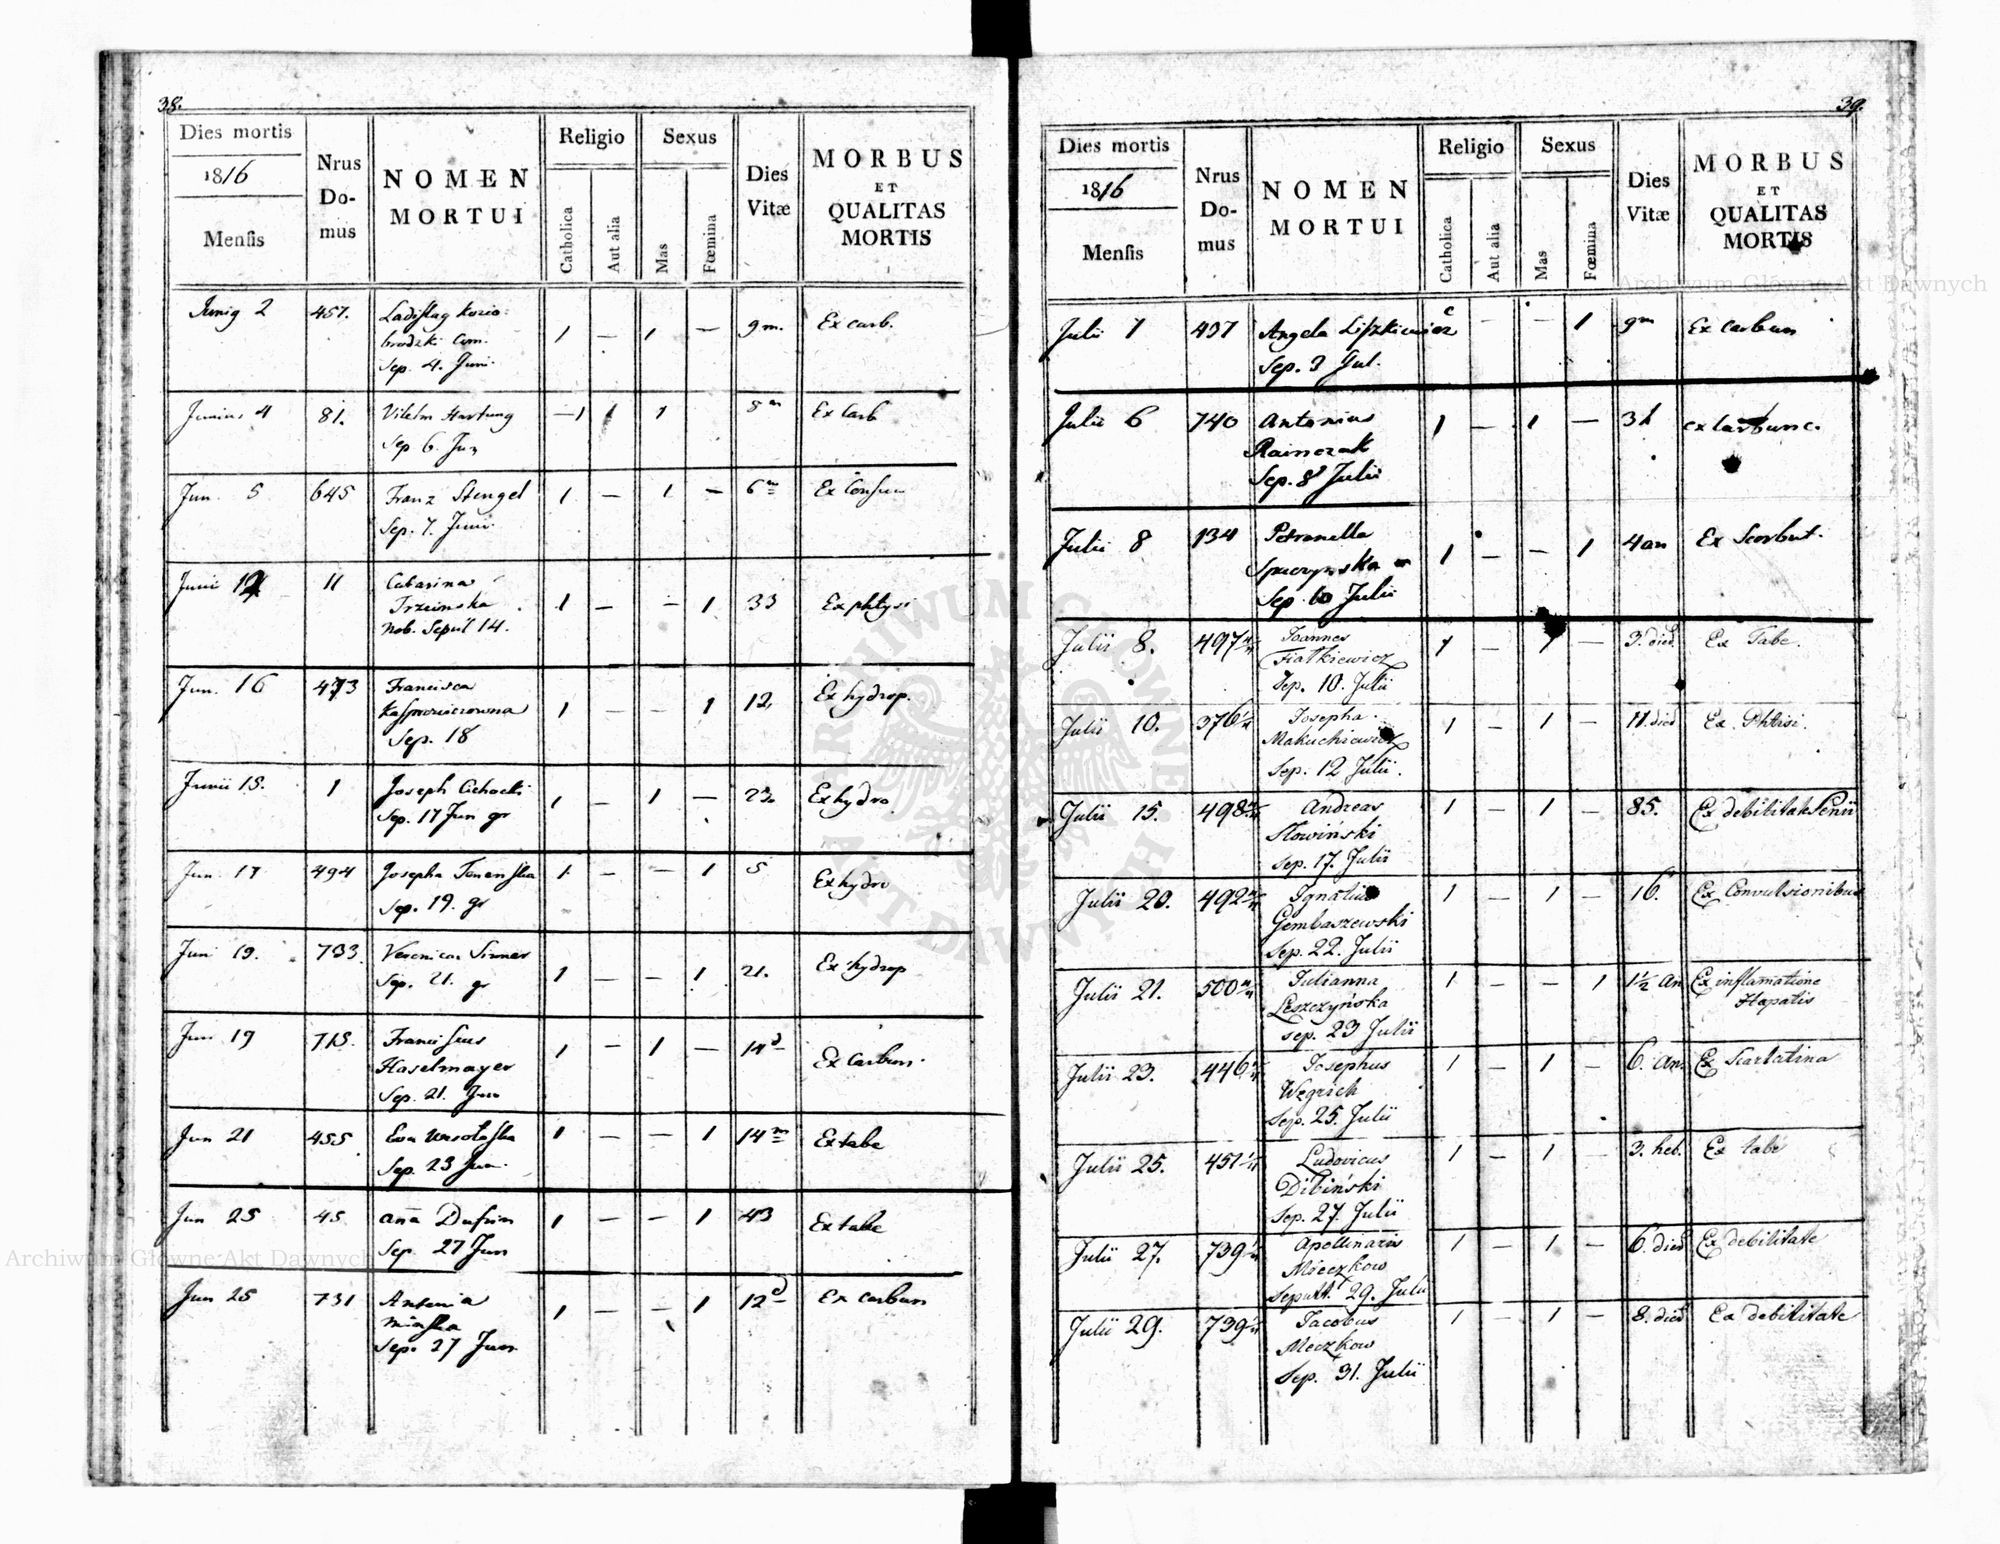 38.
Dies mortis
1816
Mensis
Nrus Do- mus
NOMEN MORTUI
Religio
Catholica
Aut alia
Sexus
Mas
Fœmina
Dies Vitæ
MORBUS ET QUALITAS MORTIS
457. 1 – 1 – 9 m. Ex carb.
Sep. 4. Juni.
Junius 4 81. Vilelm Hartung – 1 1 1 8 m Ex Carb
Sep 6. Jun
Jun. 5 645 Franz Stengel 1 – 1 – 6 m
Sep. 7. Junii
Junii 11 Catarina 1 – – 1 33 Ex phtysi
Trzcinska
Nob. Sepult 14.
Jun. 16 473 Francisca 1 – – 1 12. Ex hydrop.
Sep. 18
Junii 15. 1 Joseph Cichocki 1 – 1 – Ex hydro
Sep. 17 Jun gr
Jun 17 494 Josepha 1 – – 1 5 Ex hydro
Sep. 19. gr
Jun 19. 733. Veronica 1 – – 1 21. Ex hydrop
Sep. 21. gr
Jun 19 715. 1 – 1 – 14 d Ex Carbun.
Haselmayer
Sep. 21. Jun
Jun 21 455 Eva 1 – – 1 14 m Ex tabe
Sep. 23 Jun.
Jun 25 45 Aña 1 – – 1 43 Ex tabe
Sep. 27 Jun
Jun 25 731 Antonia 1 – – 1 12 d Ex carbun
Sep. 27 Jun
39.
Dies mortis
1816
Mensis
Nrus Do- mus
NOMEN MORTUI
Religio
Catholica
Aut alia
Sexus
Mas
Fœmina
Dies Vitæ
MORBUS ET QUALITAS MORTIS
Julii 1 437 Angela Liszkiewicz – – 1 9 m Ex Carbun
Sep. 3 Jul.
Julii 6 740 Antonius 1 – 1 – ex carbunc.
Rainczak
Sep. 8 Julii
Julii 8 134 Petronella 1 – – 1 4 an Ex Scorbut.
Sep. 10 Julii
Julii 8. 497 Joannes 1 – 1 – 3. died Ex Tabe.
Fiatkiewicz
Sep. 10. Julii
Julii 10. 376 Josepha 1 – 1 – 11. died Ex Phtisi.
Makuchiewicz
Sep. 12 Julii.
Julii 15. 498 Andreas 1 – 1 – 85. Ex debilitate Senii
Słowiński
Sep. 17. Julii
Julii 20. 492 Ignatius 1 – 1 – 16. Ex Convulsionibus
Gembaszewski
Sep. 22. Julii
Julii 21. 500 Julianna 1 – – 1 1½ An Ex inflamatione
Leszczyńska Hepatis
sep. 23 Julii
Julii 23. 446 Josephus 1 – 1 – 6. An. Ex Scarlatina
Węgrich
Sep. 25. Julii
Julii 25. 451 Ludovicus 1 – 1 – 3. heb. Ex tabe
Dibiński
Sep. 27. Julii
Julii 27. 739 Apollinaris 1 – 1 – 6. died Ex debilitate
Mieczkow
Sepult. 29. Julii
Julii 29. 739 Jacobus 1 – 1 – 8. died Ex debilitate
Meczkow
Sep. 31. Julii
Archiwum Główne Akt Dawnych
Archiwum Główne Akt Dawnych
ARCHIWUM GŁÓWNE AKT DAWNYCH